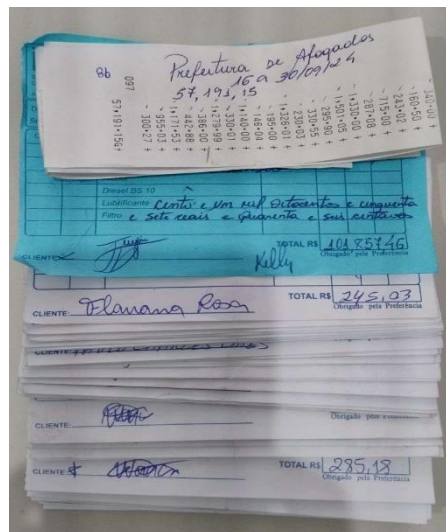 86
Prefeitura de Afogados
16 a 30/09/24
57,191,15
097
57·191·15G+
300·27 +
955·03 +
1·171·53 +
442·88 +
386·00 +
1·279·99 +
330·01 +
1·140·00 +
146·04 +
195·00 +
1·326·01 +
230·03 +
330·55 +
295·90 +
1·501·05 +
1·330·00 +
287·08 +
115·00 +
243·02 +
160·50 +
340·00 +
Diesel BS 10
Lubrificante Cento e um mil Oitocentos e cinquenta
Filtro e Sete reais e Quarenta e seis centavos
CLIENTE: TOTAL R$ 101.857,46
Obrigado pela Preferência
Kelly
CLIENTE: Flaviana Rosa TOTAL R$ 245,03
Obrigado pela Preferência
CLIENTE:
CLIENTE: Obrigado pela
CLIENTE: TOTAL R$ 285,18
Obrigado pela Preferência